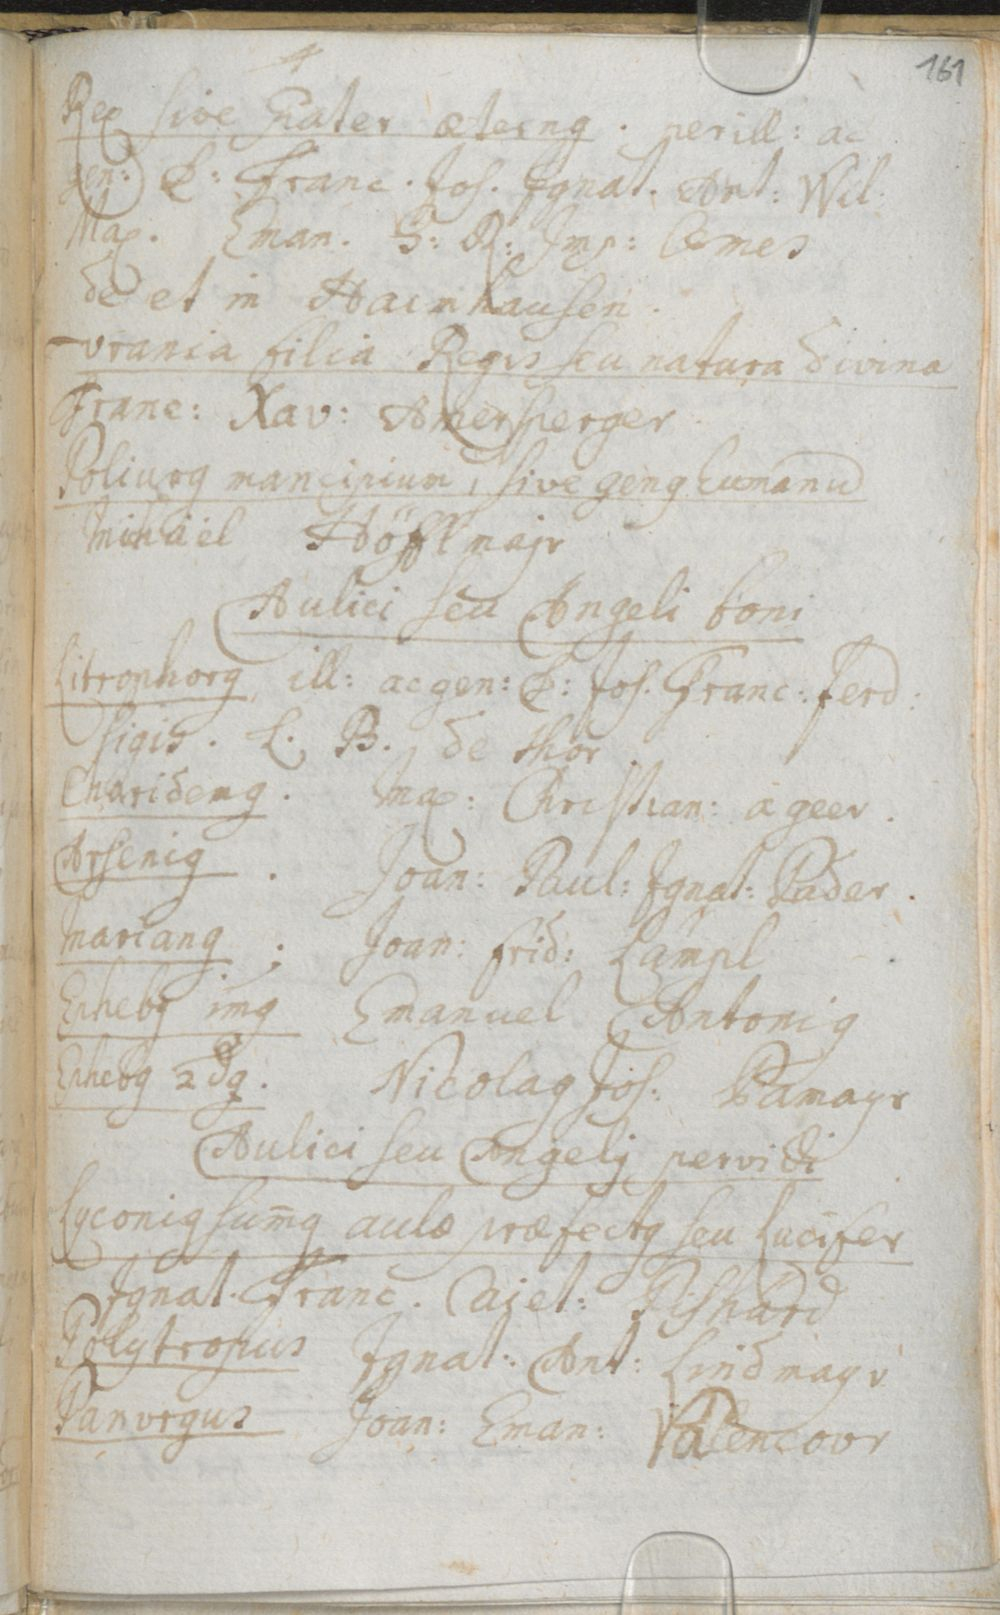 161
Rex sive Pater æternq. perill: ac
gen: D: Franc. Jos. Ignat. Ant: Wil:
Max. Eman. S: R: Imp: Comes
de et in Haimhausen.
Vrania filia Regis seu natura divina
Franc: Xav: Amersperger
Poliurq mancipium, sive genq humanū
Michäel Höfflmajr
Aulici seu Angeli boni
Litrophorq ill: ac gen: D: Jos. Franc: Ferd:
Sigis. L. B. de Thor
Charidemq. Max: Christian: à geer.
Arseniq. Joan: Paul: Ignat: Pader.
Marianq. Joan: Frid: Lampl
Ephebq 1mq Emanuel Antoniq
Ephebq 2dq. Nicolaq Jos. Pamayr
Aulici seu Angelj pervidi
Lyconiq sum̄q aulæ præfectq seu Lucifer
Ignat. Franc. Cajet: Pishard
Polytropus Ignat: Ant: Lindmayr
Panurgus Joan: Eman: Valencour